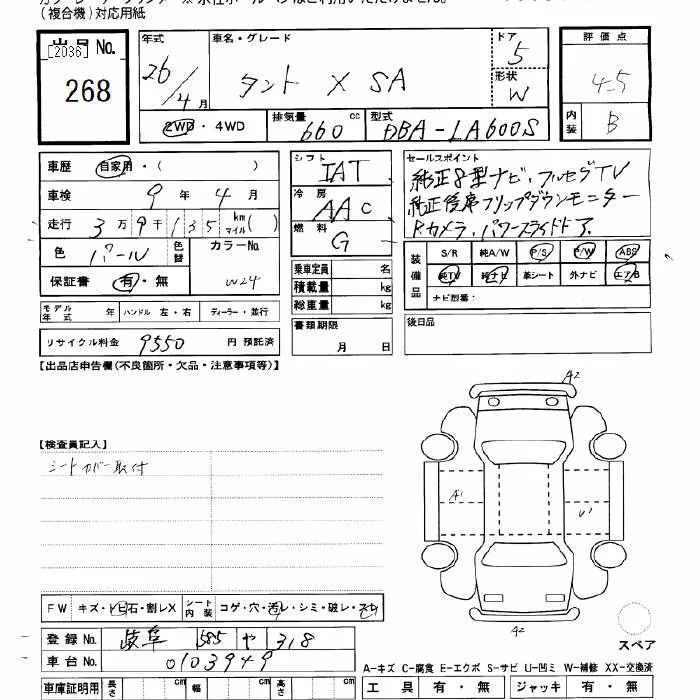 (複合機)対応用紙
出品No.
[2036]
268
年式
26/4月
車名・グレード
タント X SA
ドア
5
形状
W
評価点
4.5
2WD・4WD
排気量
660 cc
型式
DBA-LA600S
内装
B
車歴 自家用・( )
車検 9年4月
走行 3万9千135 km マイル( )
色 パール 色替
カラーNo.
W24
保証書 有・無
シフト
IAT
冷房
AAC
燃料
G
セールスポイント
純正8型ナビ、フルセグTV
純正後席フリップダウンモニター
Rカメラ、パワースライドドア
装備品
S/R 純A/W P/S P/W ABS
純TV 純ナビ 革シート 外ナビ エアB
ナビ型番:
乗車定員 名
積載量 kg
総重量 kg
モデル年式 年 ハンドル 左・右 ディーラー・並行
リサイクル料金 9550 円 預託済
書類期限
月 日
後日品
【出品店申告欄(不良箇所・欠品・注意事項等)】
【検査員記入】
シートカバー取付
A2
A1
U1
A2
スペア
FW キズ・飛石・割レX シート内装 コゲ・穴・汚レ・シミ・破レ・スレ
登録No. 岐阜 585 や 318
車台No. 0103949
A-キズ C-腐食 E-エクボ S-サビ U-凹ミ W-補修 XX-交換済
車庫証明用 長さ cm 幅 cm 高さ cm
工具 有・無 ジャッキ 有・無